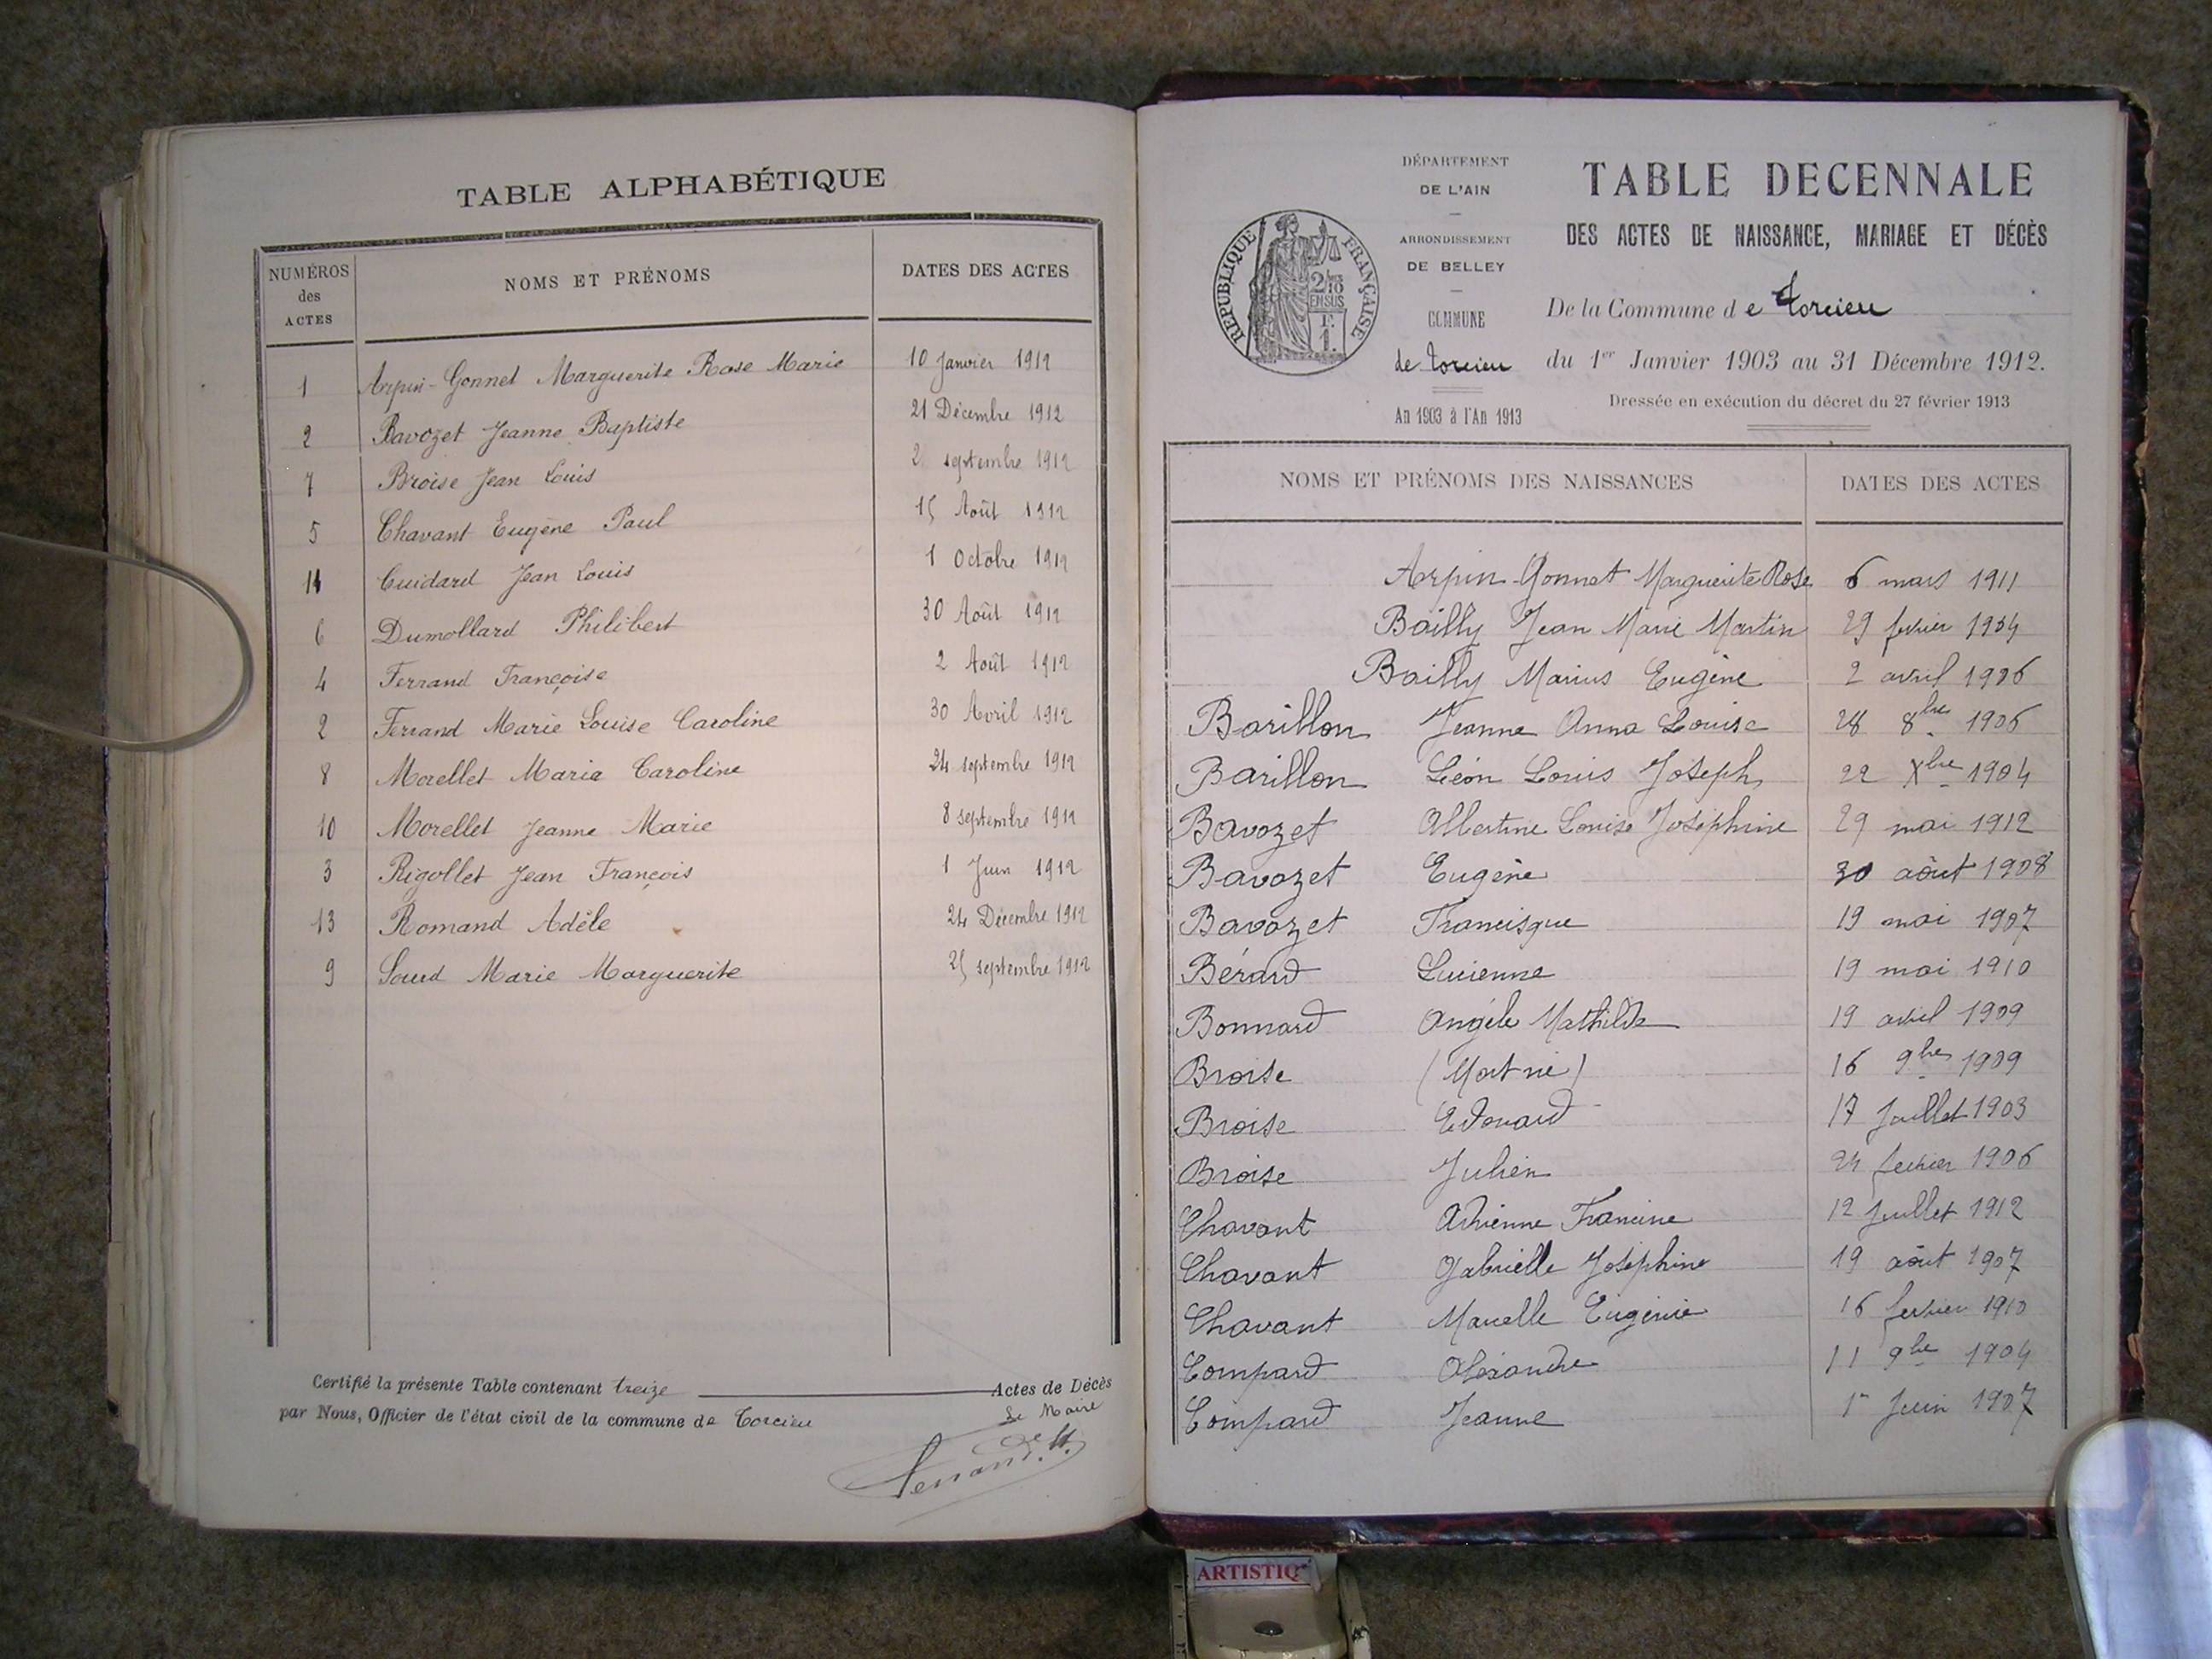 TABLE ALPHABÉTIQUE
NUMÉROS des ACTES NOMS ET PRÉNOMS DATES DES ACTES
1 Arpin-Gonnet Marguerite Rose Marie 10 Janvier 1912
2 Bavozet Jeanne Baptiste 21 Décembre 1912
7 Broise Jean Louis 2 septembre 1912
5 Chavant Eugène Paul 15 Août 1912
11 Cuidard Jean Louis 1 Octobre 1912
6 Dumollard Philibert 30 Août 1912
4 Ferrand Françoise 2 Août 1912
2 Ferrand Marie Louise Caroline 30 Avril 1912
8 Morellet Maria Caroline 24 septembre 1912
10 Morellet Jeanne Marie 8 septembre 1912
3 Rigollet Jean François 1 Juin 1912
13 Romand Adèle 24 Décembre 1912
9 Soud Marie Marguerite 25 septembre 1912
Certifié la présente Table contenant treize Actes de Décès
par Nous, Officier de l'état civil de la commune de Torcieu
Le Maire
DÉPARTEMENT
DE L'AIN
ARRONDISSEMENT
DE BELLEY
COMMUNE
de Torcieu
An 1903 à l'An 1913
RÉPUBLIQUE FRANÇAISE
2/10 EN SUS
F. 1.
TABLE DECENNALE
DES ACTES DE NAISSANCE, MARIAGE ET DÉCÈS
De la Commune de Torcieu
du 1er Janvier 1903 au 31 Décembre 1912.
Dressée en exécution du décret du 27 février 1913
NOMS ET PRÉNOMS DES NAISSANCES DATES DES ACTES
Arpin Gonnet Marguerite Rose 6 mars 1911
Bailly Jean Marie Martin 29 fevrier 1904
Bailly Marius Eugène 2 avril 1906
Barillon Jeanne Anna Louise 28 8bre 1906
Barillon Léon Louis Joseph 22 Xbre 1904
Bavozet Albertine Louise Joséphine 29 mai 1912
Bavozet Eugène 30 août 1908
Bavozet Francisque 19 mai 1907
Bérard Lucienne 19 mai 1910
Bonnard Angèle Mathilde 19 avril 1909
Broise (Mort né) 16 9bre 1909
Broise Edouard 17 Juillet 1903
Broise Julien 24 fevrier 1906
Chavant Adrienne Francine 12 Juillet 1912
Chavant Gabrielle Joséphine 19 août 1907
Chavant Marcelle Eugénie 16 fevrier 1910
Compard Alexandre 11 9bre 1904
Compard Jeanne 1er Juin 1907
ARTISTIQ